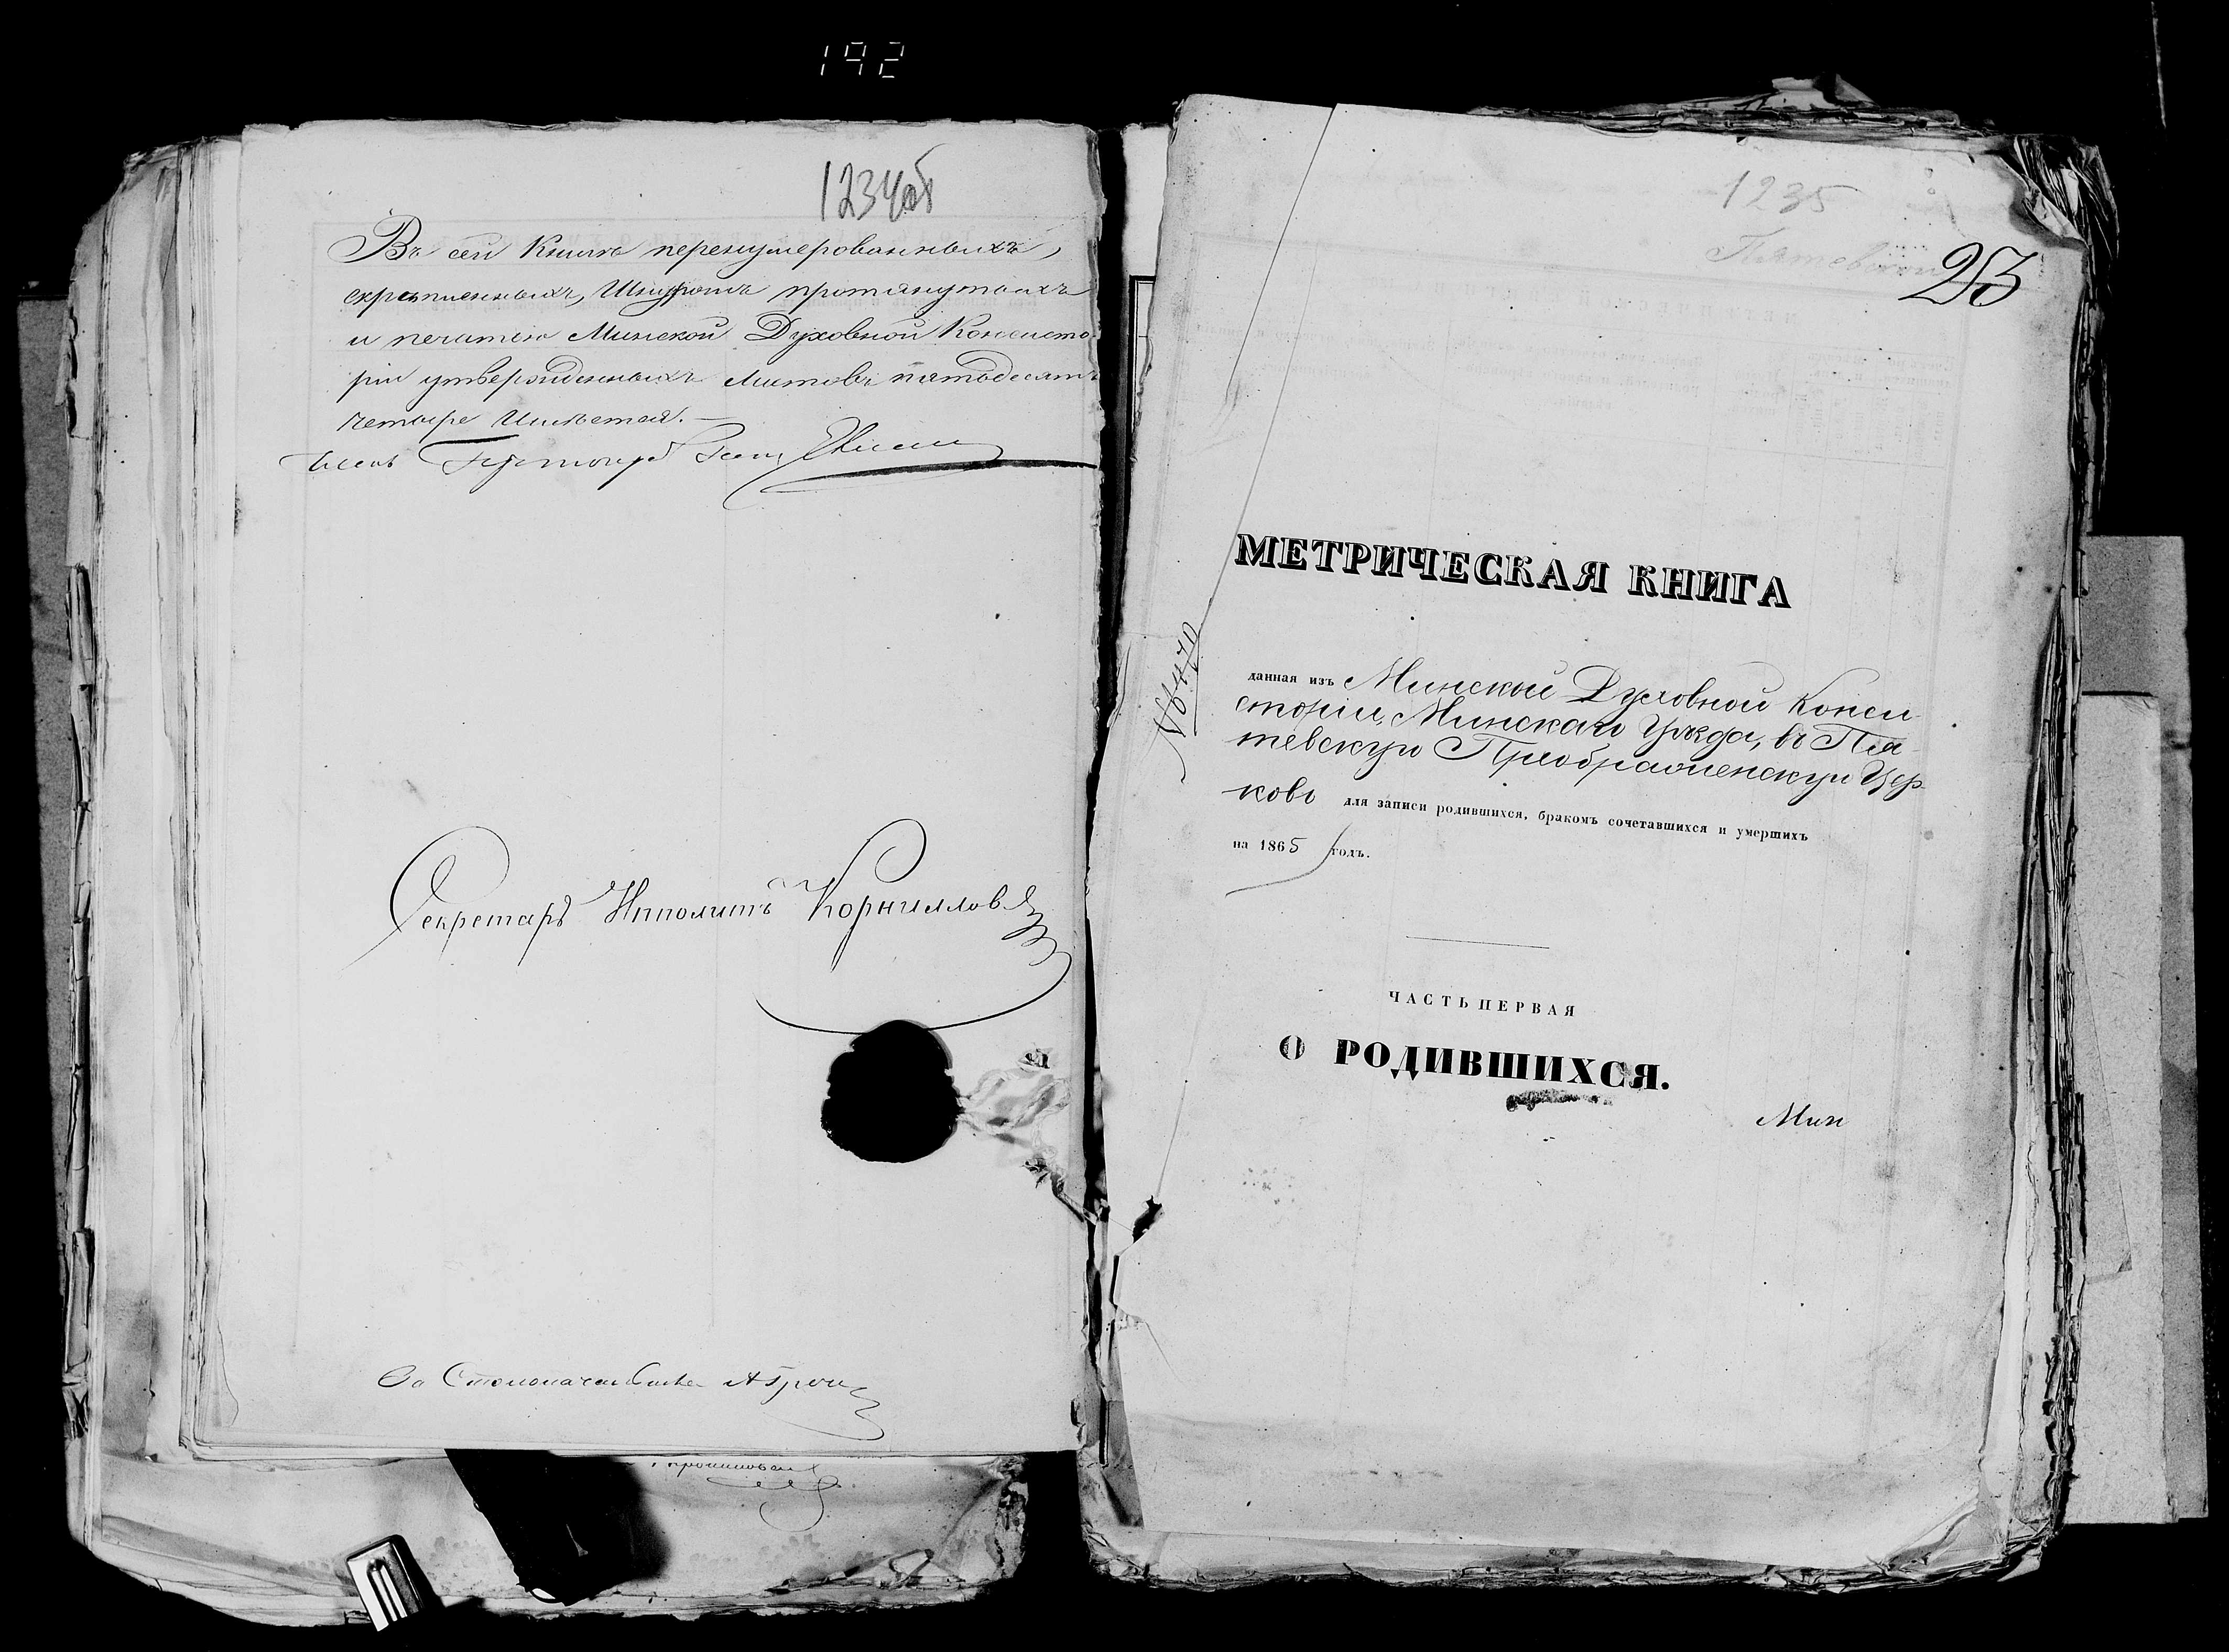 192
1234об
Въ сей Книгѣ перенумерованныхъ,
скрѣпленныхъ, Шнуромъ протянутыхъ
и печатью Минской Духовной Консисто-
ріи утвержденныхъ листовъ пятьдесятъ
четыре Имѣется.
Членъ
Секретарь Ипполитъ Корниловъ
За Столоначальника
1235
Пятевской
23
МЕТРИЧЕСКАЯ КНИГА
№6470
данная изъ Минской Духовной Конси-
сторіи, Минскаго Уѣзда, въ Пя-
тевскую Преображенскую Цер-
ковь для записи родившихся, бракомъ сочетавшихся и умершихъ
на 1865 годъ.
ЧАСТЬ ПЕРВАЯ
О РОДИВШИХСЯ.
Мин